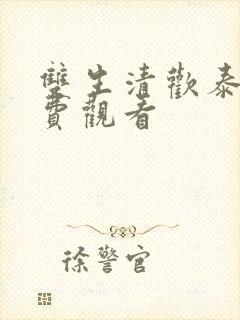 雙生清歡泰
費觀看
徐警官